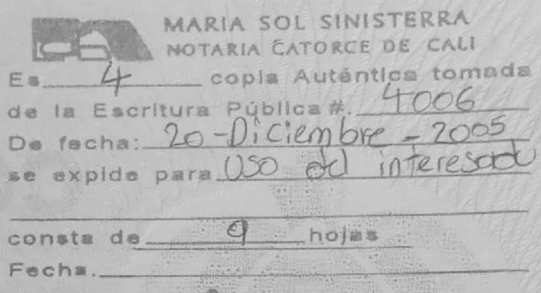 MARIA SOL SINISTERRA
NOTARIA CATORCE DE CALI
Es 4 copia Auténtica tomada
de la Escritura Pública #. 4006
De fecha: 20-Diciembre-2005
se expide para Uso del interesado
consta de 9 hojas
Fecha.